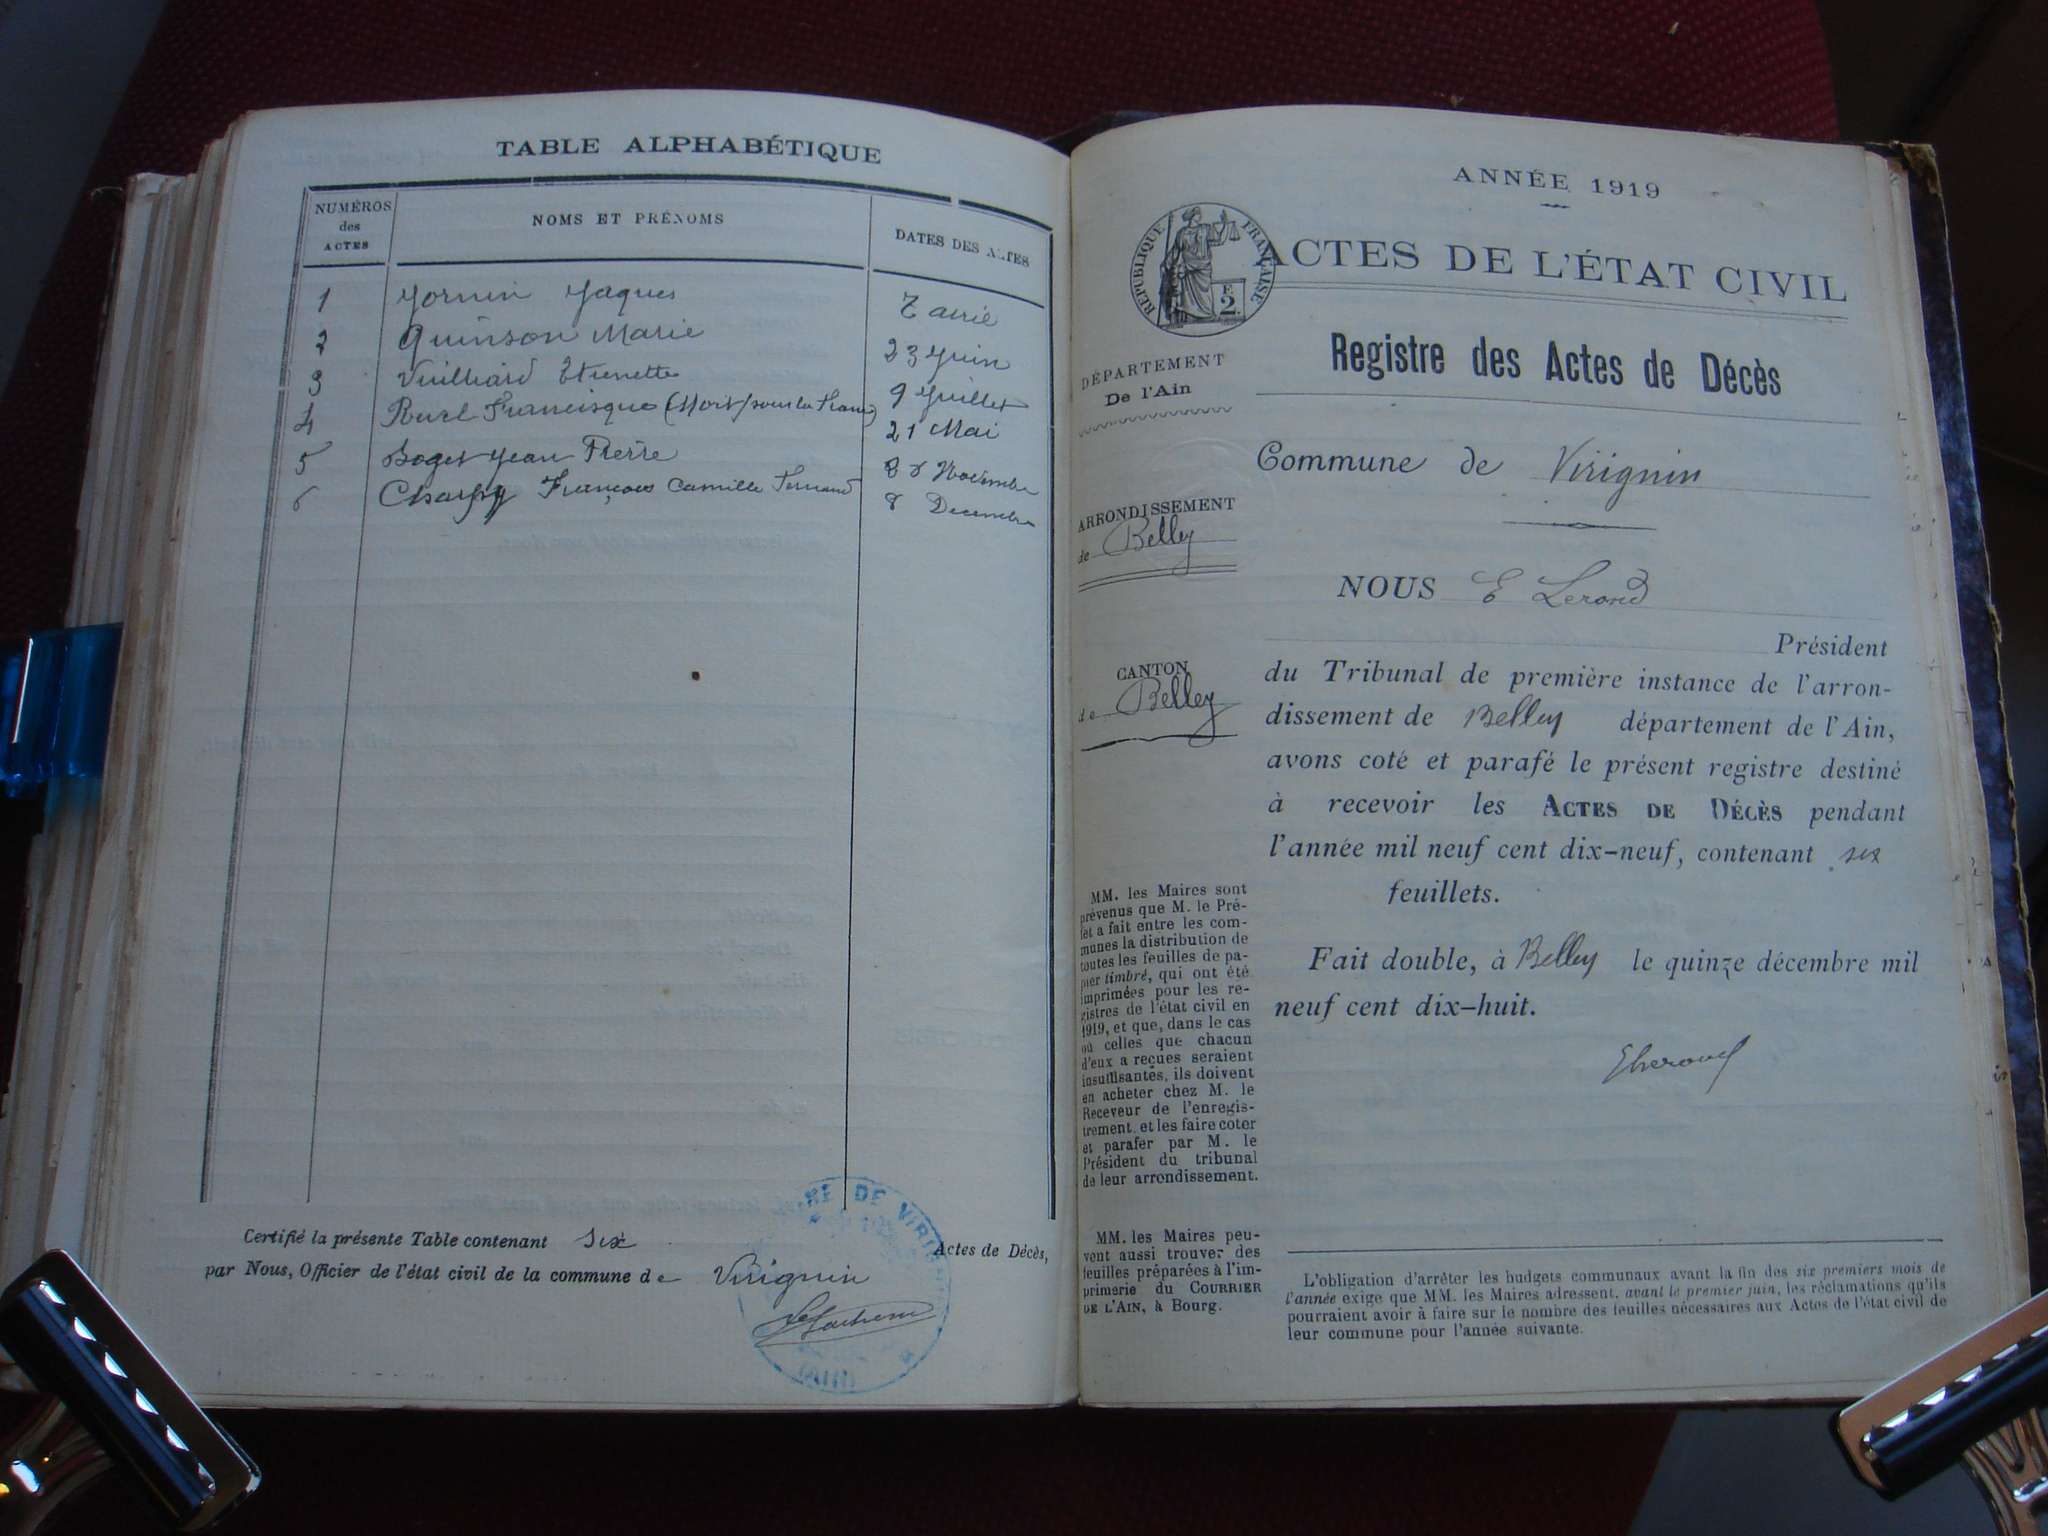 TABLE ALPHABÉTIQUE
NUMÉROS des ACTES
NOMS ET PRÉNOMS
DATES DES ACTES
1 Jaques
2 Quinson Marie 23 Juin
3 Vuilliard Etienette 9 Juillet
4 Francisque (Mort pour la France) 21 Mai
5 Boget Jean Pierre Novembre
6 François Camille Fernand 8 Decembre
Certifié la présente Table contenant six Actes de Décès,
par Nous, Officier de l'état civil de la commune de Virignin
DE VIRI
(AIN)
ANNÉE 1919
RÉPUBLIQUE FRANÇAISE
2
ACTES DE L'ÉTAT CIVIL
Registre des Actes de Décès
DÉPARTEMENT
De l'Ain
Commune de Virignin
ARRONDISSEMENT
de Belley
CANTON
de Belley
NOUS E Lerond
Président
du Tribunal de première instance de l'arron-
dissement de Belley département de l'Ain,
avons coté et parafé le présent registre destiné
à recevoir les ACTES DE DÉCÈS pendant
l'année mil neuf cent dix-neuf, contenant six
feuillets.
Fait double, à Belley le quinze décembre mil
neuf cent dix-huit.
MM. les Maires sont
prévenus que M. le Pré-
fet a fait entre les com-
munes la distribution de
toutes les feuilles de pa-
pier timbré, qui ont été
imprimées pour les re-
gistres de l'état civil en
1919, et que, dans le cas
où celles que chacun
d'eux a reçues seraient
insuffisantes, ils doivent
en acheter chez M. le
Receveur de l'enregis-
trement. et les faire coter
et parafer par M. le
Président du tribunal
de leur arrondissement.
MM. les Maires peu-
vent aussi trouver des
feuilles préparées à l'im-
primerie du COURRIER
DE L'AIN, à Bourg.
L'obligation d'arrêter les budgets communaux avant la fin des six premiers mois de
l'année exige que MM. les Maires adressent, avant le premier juin, les réclamations qu'ils
pourraient avoir à faire sur le nombre des feuilles nécessaires aux Actes de l'état civil de
leur commune pour l'année suivante.